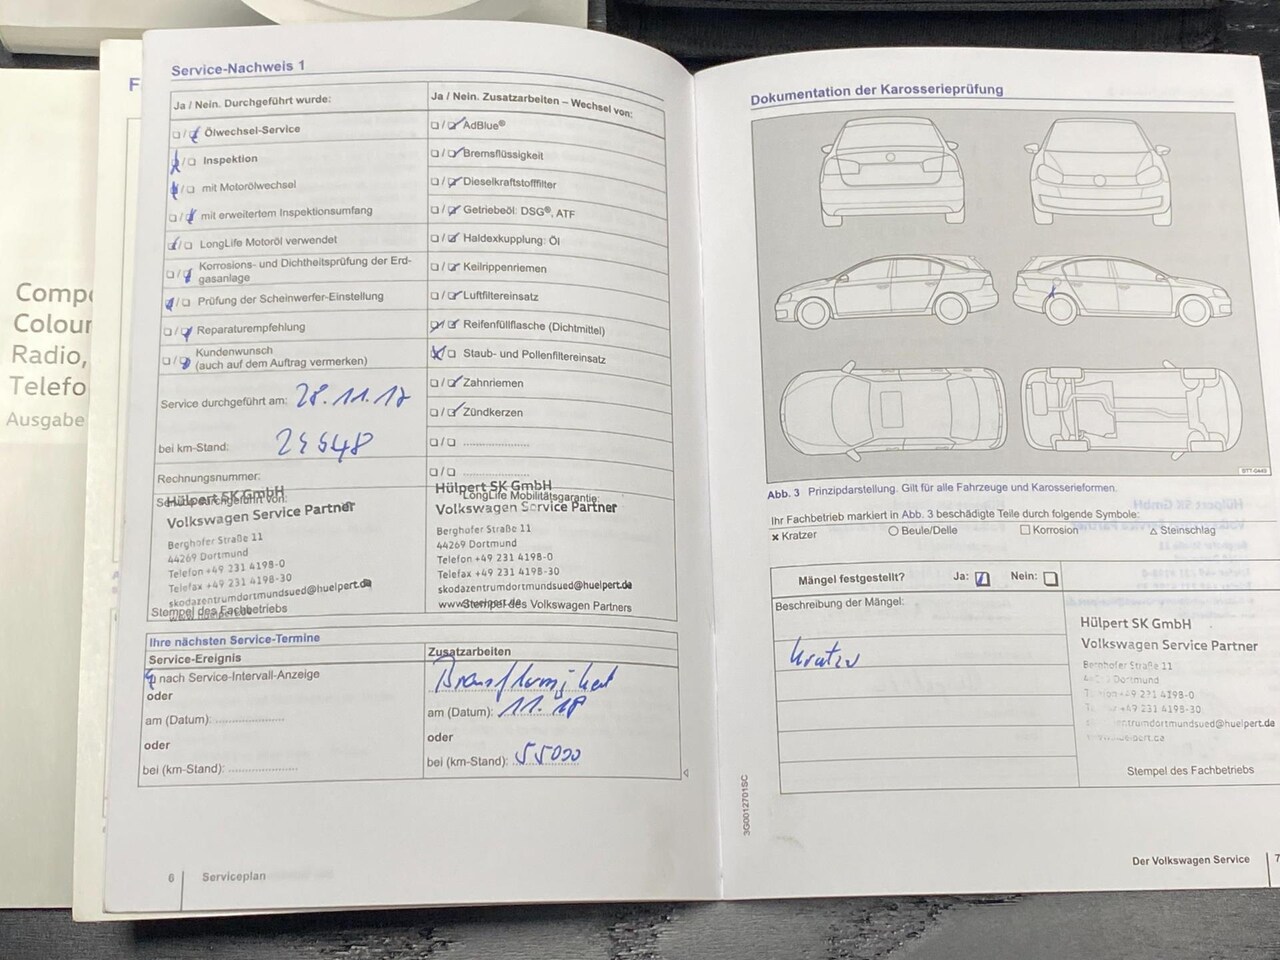 Comp
Colour
Radio,
Telefo
Ausgabe
F
Service-Nachweis 1
Ja / Nein. Durchgeführt wurde:
Ölwechsel-Service
Inspektion
mit Motorölwechsel
mit erweitertem Inspektionsumfang
LongLife Motoröl verwendet
Korrosions- und Dichtheitsprüfung der Erd-
gasanlage
Prüfung der Scheinwerfer-Einstellung
Reparaturempfehlung
Kundenwunsch
(auch auf dem Auftrag vermerken)
Service durchgeführt am: 28.11.17
bei km-Stand: 25548
Rechnungsnummer:
Service durchgeführt von:
Hülpert SK GmbH
Volkswagen Service Partner
Berghofer Straße 11
44269 Dortmund
Telefon +49 231 4198-0
Telefax +49 231 4198-30
skodazentrumdortmundsued@huelpert.de
Stempel des Fachbetriebs
Ja / Nein. Zusatzarbeiten – Wechsel von:
AdBlue®
Bremsflüssigkeit
Dieselkraftstofffilter
Getriebeöl: DSG®, ATF
Haldexkupplung: Öl
Keilrippenriemen
Luftfiltereinsatz
Reifenfüllflasche (Dichtmittel)
Staub- und Pollenfiltereinsatz
Zahnriemen
Zündkerzen
LongLife Mobilitätsgarantie:
Hülpert SK GmbH
Volkswagen Service Partner
Berghofer Straße 11
44269 Dortmund
Telefon +49 231 4198-0
Telefax +49 231 4198-30
skodazentrumdortmundsued@huelpert.de
www.huelpert.de
Stempel des Volkswagen Partners
Ihre nächsten Service-Termine
Service-Ereignis
nach Service-Intervall-Anzeige
oder
am (Datum):
oder
bei (km-Stand):
Zusatzarbeiten
Bremsflüssigkeit
am (Datum): 11.18
oder
bei (km-Stand): 55000
6 Serviceplan
Dokumentation der Karosserieprüfung
BTT-0449
Abb. 3 Prinzipdarstellung. Gilt für alle Fahrzeuge und Karosserieformen.
Ihr Fachbetrieb markiert in Abb. 3 beschädigte Teile durch folgende Symbole:
x Kratzer Beule/Delle Korrosion Steinschlag
Mängel festgestellt? Ja: Nein:
Beschreibung der Mängel:
Kratzer
Hülpert SK GmbH
Volkswagen Service Partner
Berghofer Straße 11
Dortmund
+49 231 4198-0
+49 231 4198-30
entrumdortmundsued@huelpert.de
Stempel des Fachbetriebs
3G0012701SC
Der Volkswagen Service 7